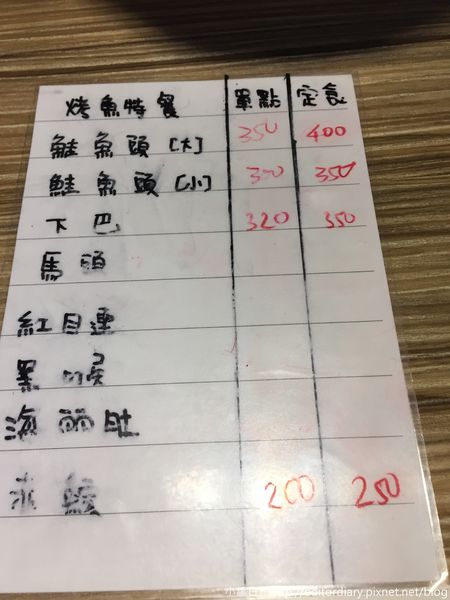 烤魚特餐 單點 定食
鮭魚頭〔大〕 350 400
鮭魚頭〔小〕 300 350
下巴 320 350
馬頭
紅目連
黑喉
海麗肚
200 250
editordiary.pixnet.net/blog